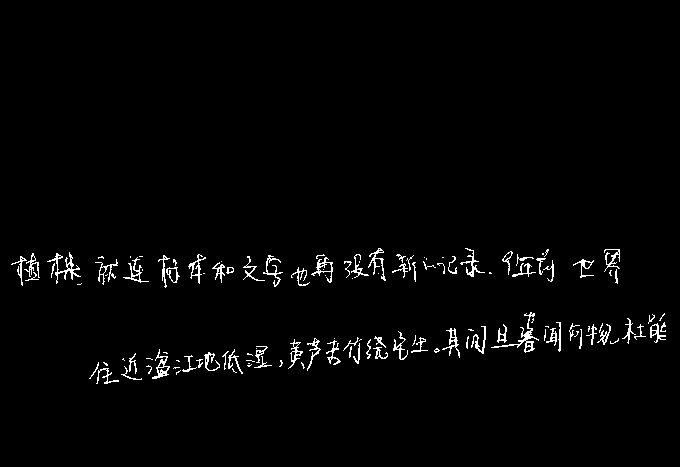 植株,就连标本和文字也再没有新的记录.今年前 世界
住近湓江地低湿,黄芦苦竹绕宅生。其间旦暮闻何物,杜鹃